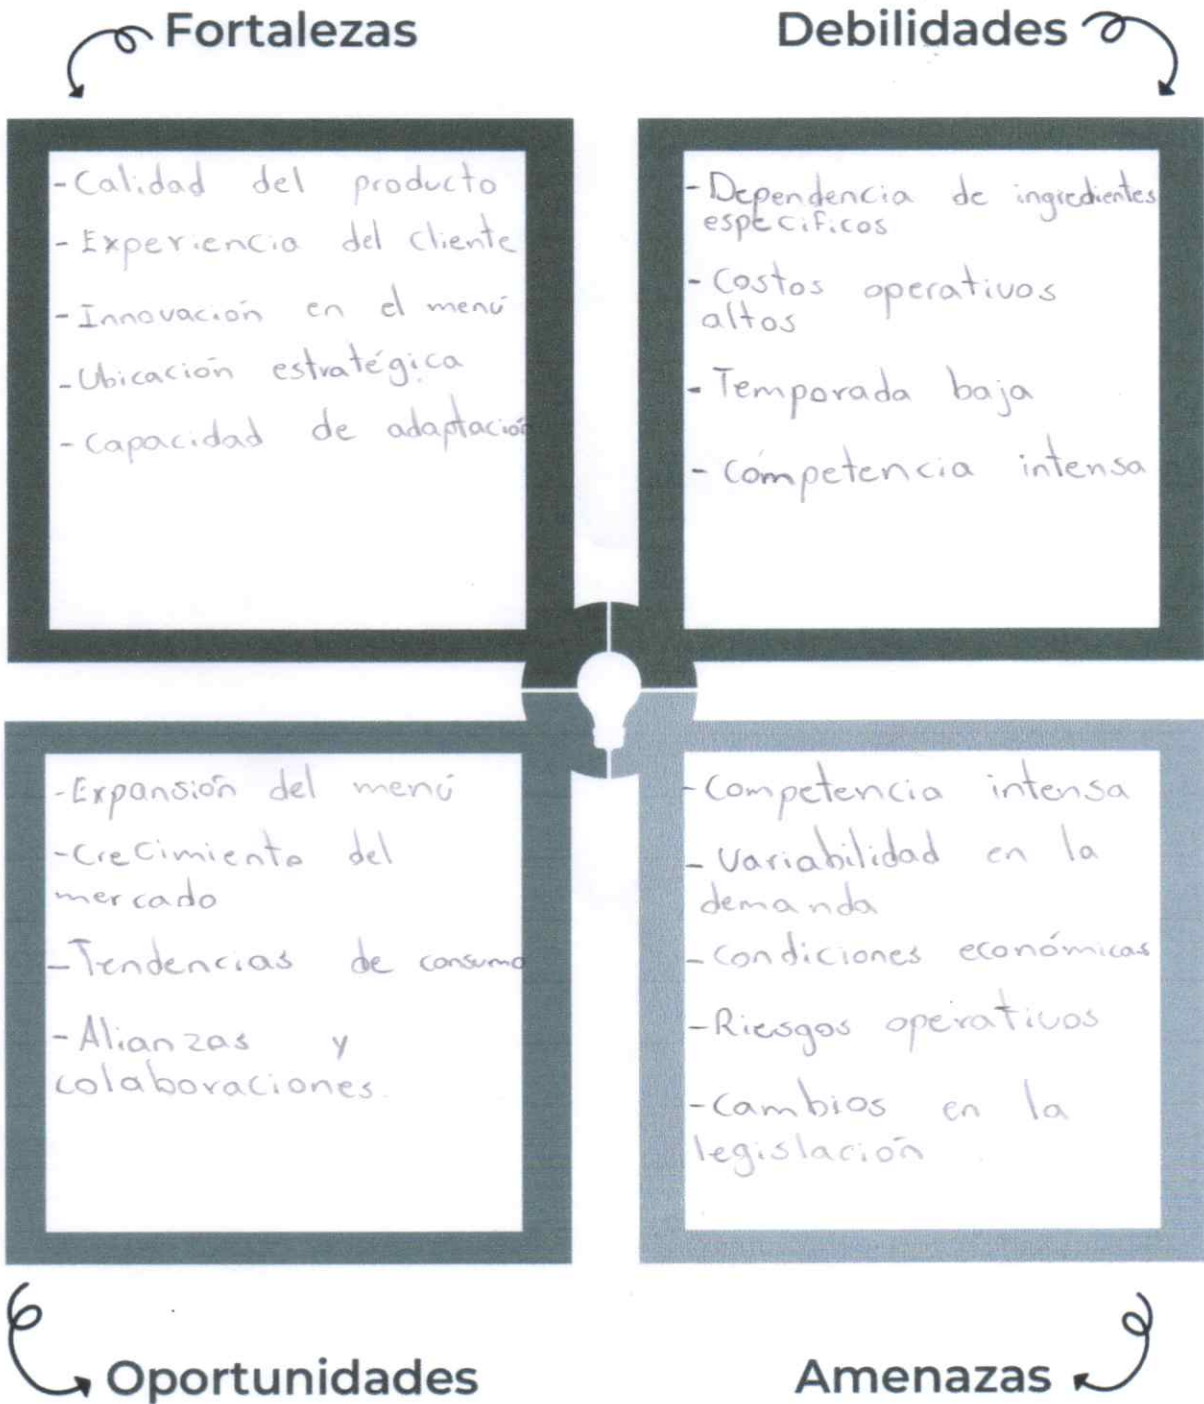 Fortalezas
- Calidad del producto
- Experiencia del cliente
- Innovación en el menú
- Ubicación estratégica
- Capacidad de adaptación
Debilidades
- Dependencia de ingredientes
especificos
- Costos operativos
altos
- Temporada baja
- competencia intensa
- Expansión del menú
- Crecimiento del
mercado
- Tendencias de consumo
- Alianzas y
colaboraciones.
Oportunidades
- Competencia intensa
- Variabilidad en la
demanda
- Condiciones económicas
- Riesgos operativos
- Cambios en la
legislación
Amenazas